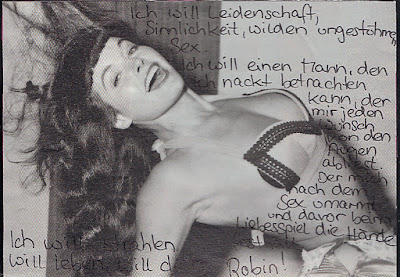 Ich will Leidenschaft,
Sinnlichkeit, wilden ungestühmen
Sex.
Ich will einen Mann, den
ich nackt betrachten
kann, der
mir jeden
Wunsch
von den
Augen
abliest.
Der mich
nach dem
Sex umarmt
und davor beim
Liebesspiel die Hände
Ich will strahlen
Will leben, will
Robin!